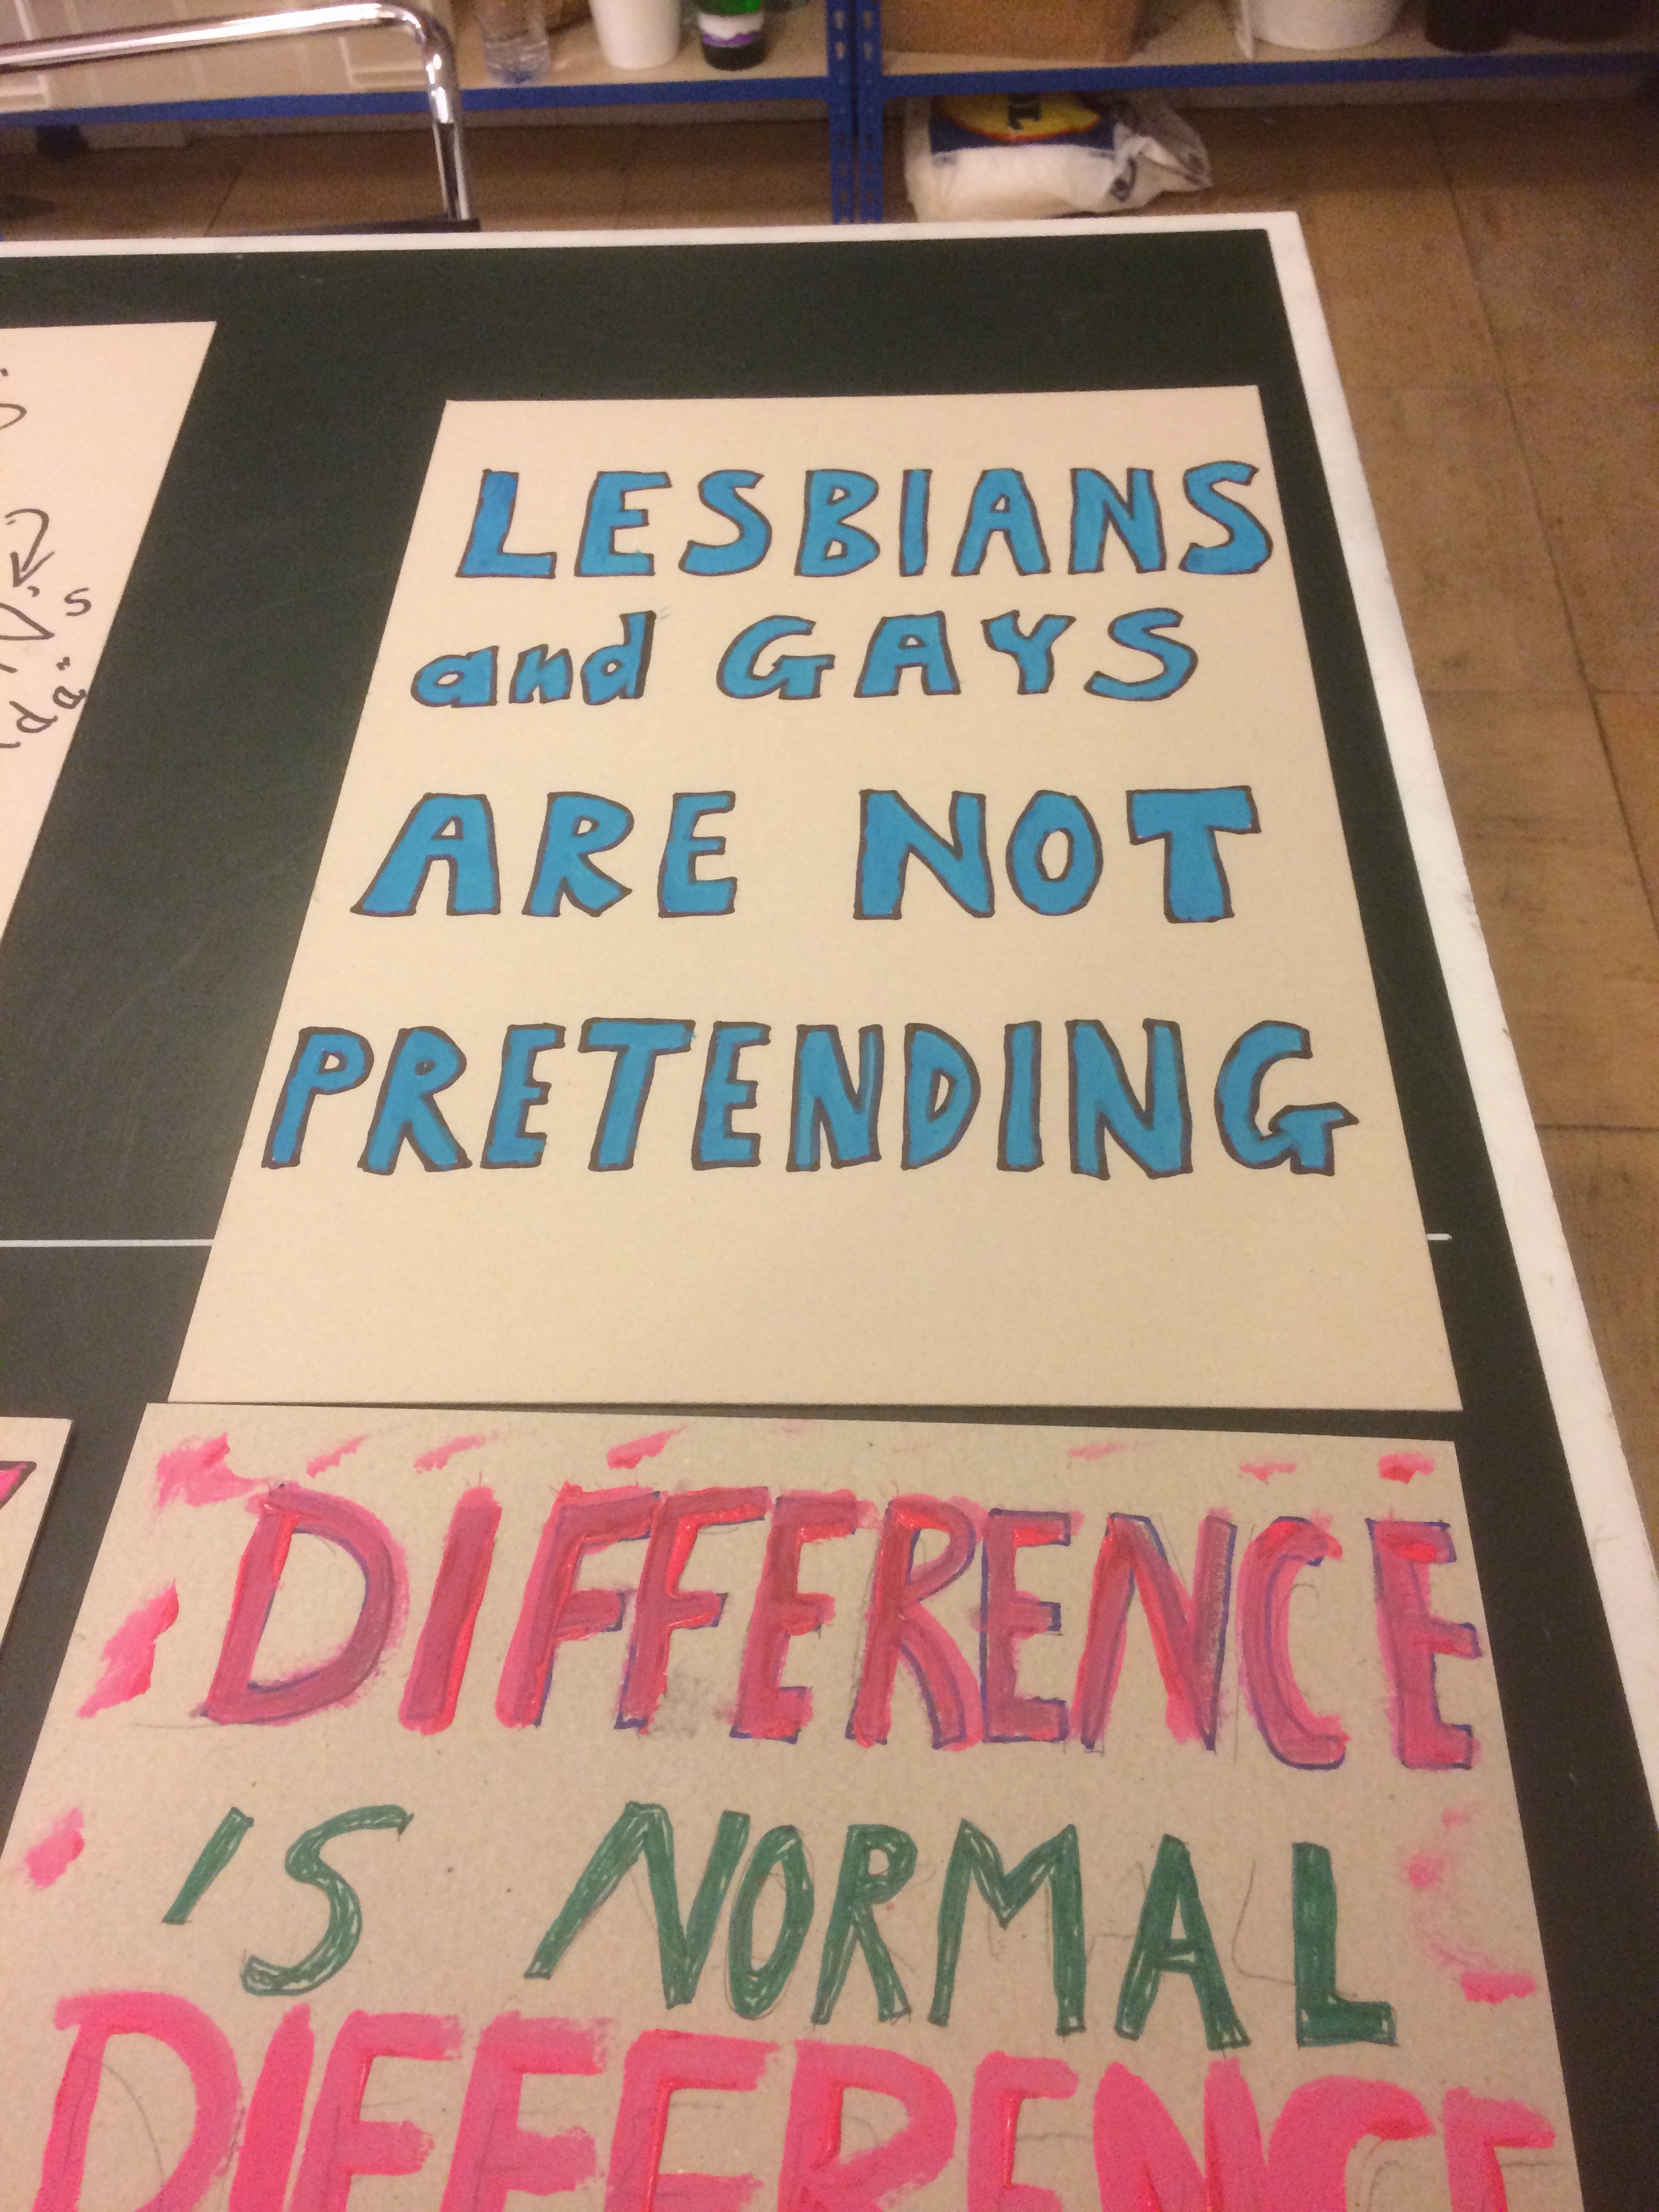 LESBIANS
and GAYS
ARE NOT
PRETENDING
DIFFERENCE
IS NORMAL
DIFFERENCE